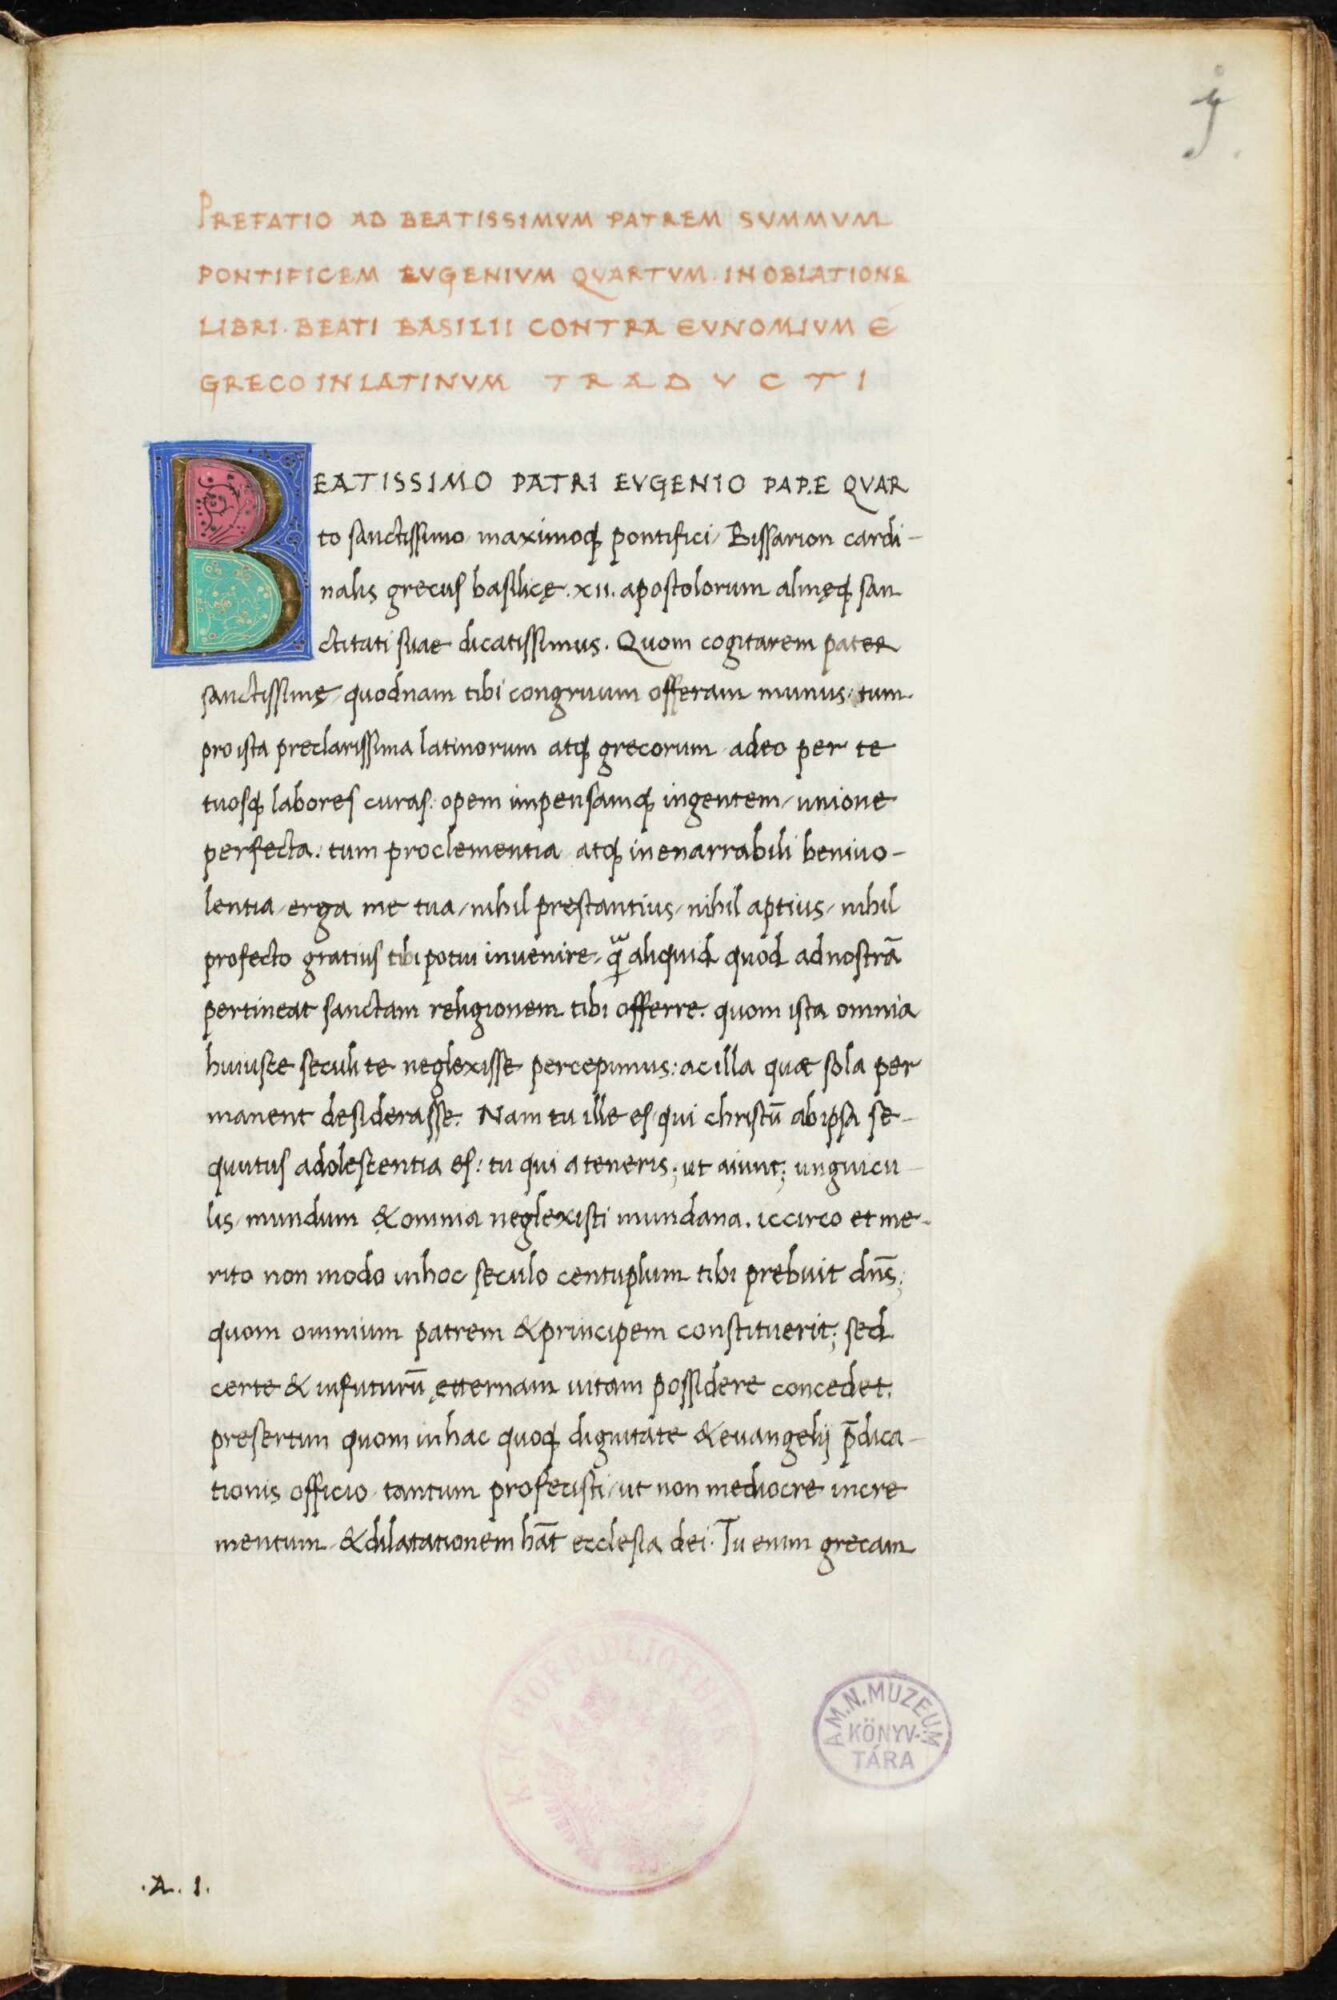 j
PREFATIO AD BEATISSIMVM PATREM SVMMVM
PONTIFICEM EVGENIVM QVARTVM. IN OBLATIONE
LIBRI. BEATI BASILII CONTRA EVNOMIVM E
GRECO IN LATINVM TRADVCTI
BEATISSIMO PATRI EVGENIO PAPE QVAR
to sanctissimo maximoqȝ pontifici / Bissarion cardi-
nalis grecus basilicę .xii. apostolorum almęqȝ san
ctitati suae dicatissimus. Quom cogitarem pater
sanctissimę / quodnam tibi congruum offeram munus / tum
pro ista preclarissima latinorum atqȝ grecorum adeo per te
tuosqȝ labores curas. opem impensamqȝ ingentem / unione
perfecta: tum pro clementia atqȝ inenarrabili benivo-
lentia erga me tua / nihil prestantius / nihil aptius / nihil
profecto gratius tibi potui invenire / qᷓ aliquid quod ad nostrā
pertineat sanctam religionem tibi offerre. quom ista omnia
huiusce seculi te neglexisse percepimus: ac illa quae sola per
manent desiderasse. Nam tu ille es / qui christū ab ipsa se-
qutus adolescentia es: tu qui a teneris; ut aiunt; unguicu-
lis / mundum & omnia neglexisti mundana. iccirco et me-
rito non modo in hoc seculo centuplum tibi prebuit dn̄s;
quom omnium patrem & principem constituerit; sed
certe & in futurū ęternam vitam possidere concedet.
presertim quom in hac quoqȝ dignitate & evangelij p̄dica-
tionis officio tantum profecisti / ut non mediocre incre
mentum & dilatationem hāt ecclesia dei. Tu enim grecam
K. K. HOFBIBLIOTHEK
A.M.N. MUZEUM
KÖNYV-
TÁRA
.A. 1.